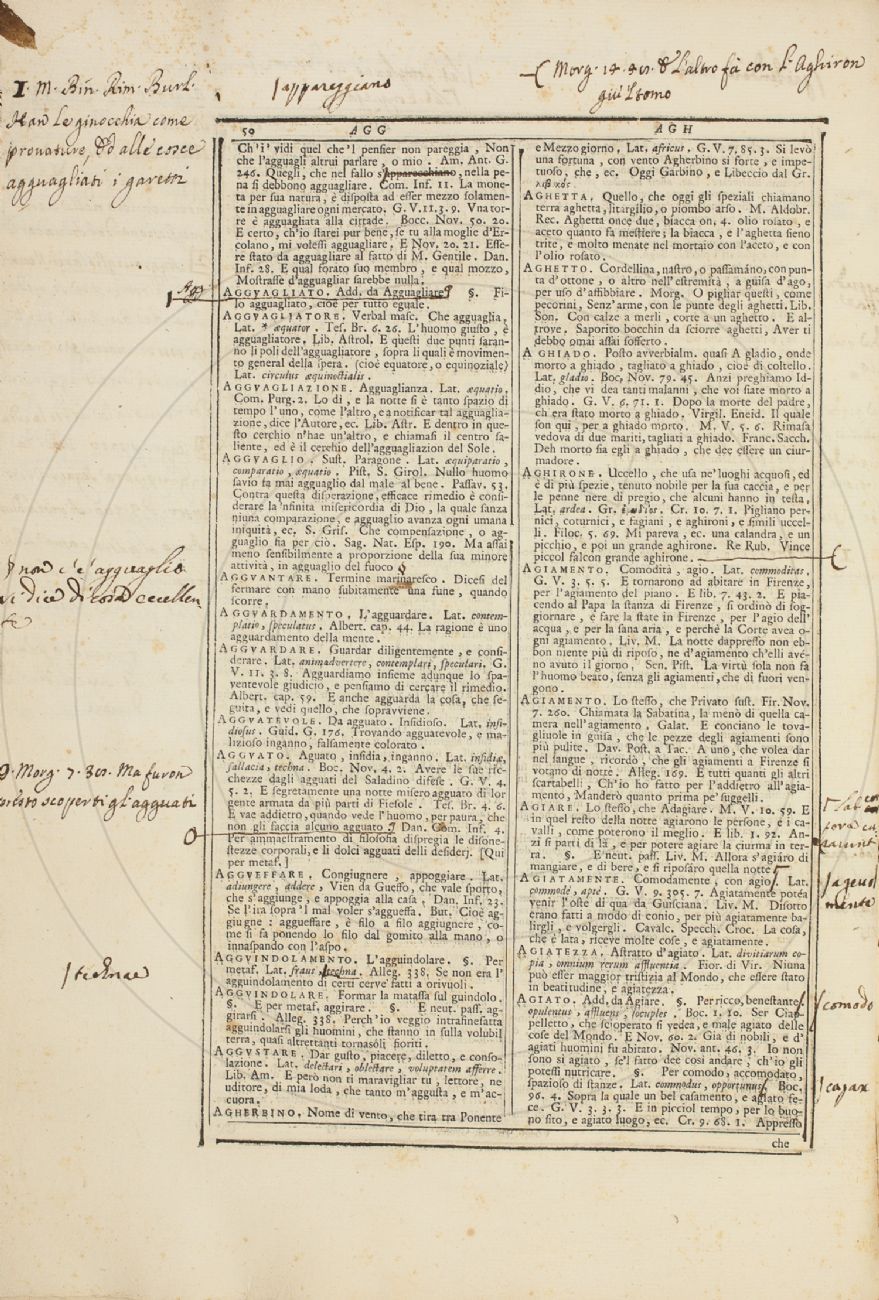 1. M. Bin. Rim. Burl.
Han le ginocchia come
agguagliati i garetti
/appareggiano
Morg. 14. & l'altro fà con l'Aghiron
giù l tomo
50 AGG
AGH
Ch'i' vidi quel che'l pensier non pareggia, Non
che l'agguagli altrui parlare, o mio. Am. Ant. G.
246. Quegli, che nel fallo s'apparecchiano, nella pe-
na si debbono agguagliare. Com. Inf. 11. La mone-
ta per sua natura, è disposta ad esser mezzo solamen-
te in agguagliare ogni mercato. G. V. 11. 3. 9. Vna tor-
re è agguagliata alla cittade. Bocc. Nov. 50. 20.
E certo, ch'io starei pur bene, se tu alla moglie d'Er-
colano, mi volessi agguagliare. E Nov. 20. 21. Esse-
re stato da agguagliare al fatto di M. Gentile. Dan.
Inf. 28. E qual forato suo membro, e qual mozzo,
Mostrasse d'agguagliar sarebbe nulla.
AGGVAGLIATO. Add. da Agguagliare. §. Fi-
lo agguagliato, cioè per tutto eguale.
AGGVAGLIATORE. Verbal masc. Che agguaglia,
Lat. * æquator. Tes. Br. 6. 26. L'huomo giusto, è
agguagliatore. Lib. Astrol. E questi due punti saran-
no li poli dell'agguagliatore, sopra li quali è movimen-
to general della spera. (cioè equatore, o equinoziale)
Lat. circulus æquinoctialis.
AGGVAGLIAZIONE. Agguaglianza. Lat. æquatio.
Com. Purg. 2. Lo dì, e la notte si è tanto spazio di
tempo l'uno, come l'altro, e a notificar tal agguaglia-
zione, dice l'Autore, ec. Lib. Astr. E dentro in que-
sto cerchio n'hae un'altro, e chiamasi il centro sa-
liente, ed è il cerchio dell'agguagliazion del Sole.
AGGVAGLIO. Sust. Paragone. Lat. æquiparatio,
comparatio, æquatio. Pist. S. Girol. Nullo huomo
savio fa mai agguaglio dal male al bene. Passav. 53.
Contra questa disperazione, efficace rimedio è consi-
derare la 'nfinita misericordia di Dio, la quale sanza
niuna comparazione, e agguaglio avanza ogni umana
iniquità, ec. S. Gris. Che compensazione, o ag-
guaglio sia per ciò. Sag. Nat. Esp. 190. Ma assai
meno sensibilmente a proporzione della sua minore
attività, in agguaglio del fuoco
AGGVANTARE. Termine marinaresco. Dicesi del
fermare con mano subitamente una fune, quando
scorre.
AGGVARDAMENTO. L'agguardare. Lat. contem-
platio, speculatus. Albert. cap. 44. La ragione è uno
agguardamento della mente.
AGGVARDARE. Guardar diligentemente, e consi-
derare. Lat. animadvertere, contemplari, speculari. G.
V. 11. 3. 8. Agguardiamo insieme adunque lo spa-
ventevole giudicio, e pensiamo di cercare il rimedio.
Albert. cap. 59. E anche agguarda la cosa, che se-
guita, e vedi quello, che sopravviene.
AGGVATEVOLE. Da agguato. Insidioso. Lat. insi-
diosus. Guid. G. 176. Trovando agguatevole, e ma-
lizioso inganno, falsamente colorato.
AGGVATO. Aguato, insidia, inganno. Lat. insidiæ,
fallacia, techna. Boc. Nov. 4. 2. Avere le sue ric-
chezze dagli agguati del Saladino difese. G. V. 4.
5. 2. E segretamente una notte misero agguato di lor
gente armata da più parti di Fiesole. Tes. Br. 4. 6.
E vae addietro, quando vede l'huomo, per paura, che
non gli faccia alcuno agguato. Dan. Com. Inf. 4.
Per ammaestramento di filosofia dispregia le disone-
stezze corporali, e li dolci agguati delli desiderj. [Qui
per metaf.]
AGGVEFFARE. Congiugnere, appoggiare. Lat.
adiungere, addere, Vien da Gueffo, che vale sporto,
che s'aggiunge, e appoggia alla casa. Dan. Inf. 23.
Se l'ira sopra'l mal voler s'aggueffa. But. Cioè ag-
giugne: aggueffare, è filo a filo aggiugnere, co-
me si fa ponendo lo filo dal gomito alla mano, o
innaspando con l'aspo.
AGGVINDOLAMENTO. L'agguindolare. §. Per
metaf. Lat. fraus, techna. Alleg. 338. Se non era l'
agguindolamento di certi cerve' fatti a orivuoli.
AGGVINDOLARE. Formar la matassa sul guindolo.
§. E per metaf. aggirare. §. E neut. pass. ag-
girarsi. Alleg. 338. Perch'io veggio intrafinefatta
agguindolarsi gli huomini, che stanno in sulla volubil
terra, quasi altrettanti tornasóli fioriti.
AGGVSTARE. Dar gusto, piacere, diletto, e conso-
lazione. Lat. delectari, oblectare, voluptatem afferre.
Lib. Am. E però non ti maravigliar tu, lettore, ne
uditore, di mia loda, che tanto m'aggusta, e m'ac-
cuora.
AGHERBINO. Nome di vento, che tira tra Ponente
e Mezzo giorno, Lat. africus. G. V. 7. 85. 3. Si levò
una fortuna, con vento Agherbino sì forte, e impe-
tuoso, che, ec. Oggi Garbino, e Libeccio dal Gr.
AGHETTA, Quello, che oggi gli speziali chiamano
terra aghetta, litargilio, o piombo arso. M. Aldobr.
Rec. Aghetta once due, biacca on. 4. olio rosato, e
aceto quanto fa mestiere; la biacca, e l'aghetta sieno
trite, e molto menate nel mortaio con l'aceto, e con
l'olio rosato.
AGHETTO. Cordellina, nastro, o passamáno, con pun-
ta d'ottone, o altro nell'estremità, a guisa d'ago,
per uso d'affibbiare. Morg. O pigliar questi, come
pecorini, Senz'arme, con le punte degli aghetti. Lib.
Son. Con calze a merli, corte a un aghetto. E al-
trove. Saporito bocchin da sciorre aghetti, Aver ti
debbo omai assai sofferto.
A GHIADO. Posto avverbialm. quasi A gladio, onde
morto a ghiado, tagliato a ghiado, cioè di coltello.
Lat. gladio. Boc. Nov. 79. 45. Anzi preghiamo Id-
dio, che vi dea tanti malanni, che voi siate morto a
ghiado. G. V. 6. 71. 1. Dopo la morte del padre,
ch'era stato morto a ghiado. Virgil. Eneid. Il quale
son qui, per a ghiado morto. M. V. 5. 6. Rimasa
vedova di due mariti, tagliati a ghiado. Franc. Sacch.
Deh morto sia egli a ghiado, che dee essere un ciur-
madore.
AGHIRONE. Uccello, che usa ne' luoghi acquosi, ed
è di più spezie, tenuto nobile per la sua caccia, e per
le penne nere di pregio, che alcuni hanno in testa,
Lat. ardea. Gr. Cr. 10. 7. 1. Pigliano per-
nici, coturnici, e fagiani, e aghironi, e simili uccel-
li. Filoc. 5. 69. Mi pareva, ec. una calandra, e un
picchio, e poi un grande aghirone. Re Rub. Vince
piccol falcon grande aghirone.
AGIAMENTO. Comodità, agio. Lat. commoditas.
G. V. 3. 5. 5. E tornarono ad abitare in Firenze,
per l'agiamento del piano. E lib. 7. 43. 2. E pia-
cendo al Papa la stanza di Firenze, si ordinò di sog-
giornare, e fare la state in Firenze, per l'agio dell'
acqua, e per la sana aria, e perchè la Corte avea o-
gni agiamento. Liv. M. La notte dappresso non eb-
bon niente più di riposo, ne d'agiamento ch'elli avé-
no avuto il giorno. Sen. Pist. La virtù sola non fa
l'huomo beato, senza gli agiamenti, che di fuori ven-
gono.
AGIAMENTO. Lo stesso, che Privato sust. Fir. Nov.
7. 260. Chiamata la Sabatina, la menò di quella ca-
mera nell'agiamento, Galat. E conciano le tova-
gliuole in guisa, che le pezze degli agiamenti sono
più pulite. Dav. Post. a Tac. A uno, che volea dar
nel sangue, ricordò, che gli agiamenti a Firenze si
votano di notte. Alleg. 169. E tutti quanti gli altri
scartabelli, Ch'io ho fatto per l'addietro all'agia-
mento, Manderò quanto prima pe' suggelli.
AGIARE. Lo stesso, che Adagiare. M. V. 10. 59. E
in quel resto della notte agiarono le persone, e i ca-
valli, come poterono il meglio. E lib. 1. 92. An-
zi si partì di là, e per potere agiare la ciurma in ter-
ra. §. E neut. pass. Liv. M. Allora s'agiáro di
mangiare, e di bere, e si riposáro quella notte
AGIATAMENTE. Comodamente, con agio. Lat.
commodè, aptè. G. V. 9. 305. 7. Agiatamente potéa
venir l'oste di qua da Guisciana. Liv. M. Disotto
erano fatti a modo di conio, per più agiatamente ba-
lirgli, e volgergli. Cavalc. Specch. Croc. La cosa,
che è lata, riceve molte cose, e agiatamente.
AGIATEZZA. Astratto d'agiato. Lat. divitiarum co-
pia, omnium rerum affluentia. Fior. di Vir. Niuna
può esser maggior tristizia al Mondo, che essere stato
in beatitudine, e agiatezza.
AGIATO, Add. da Agiare. §. Per ricco, benestante.
opulentus, affluens, locuples. Boc. 1. 10. Ser Ciap-
pelletto, che scioperato si vedea, e male agiato delle
cose del Mondo. E Nov. 60. 2. Già di nobili, e d'
agiati huomini fu abitato. Nov. ant. 46. 3. Io non
sono sì agiato, se'l fatto dee così andare, ch'io gli
potessi nutricare. §. Per comodo, accomodato,
spazioso di stanze. Lat. commodus, opportunus. Boc.
96. 4. Sopra la quale un bel casamento, e agiato fe-
ce. G. V. 3. 3. 3. E in picciol tempo, per lo buo-
no sito, e agiato luogo, ec. Cr. 9. 68. 1. Appresso
che
non c'è agguaglio
si dice di cosa eccellen
te
9. Morg. 7. Ma furon
presto scoperti gl'agguati
/technae
/ageuol
mente
/comodo
/capax